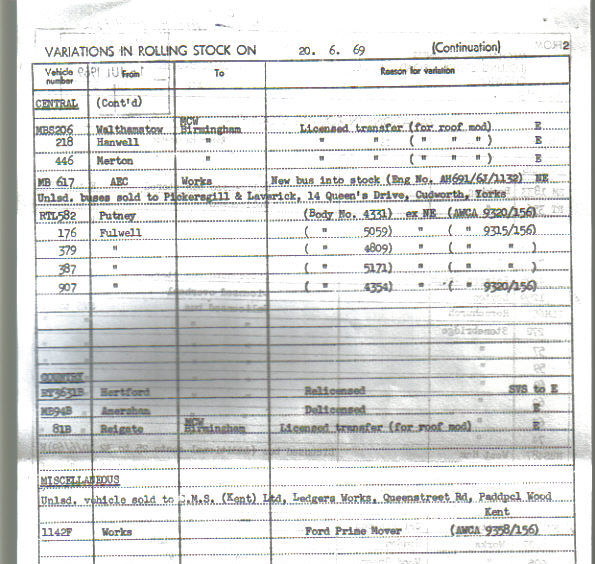 VARIATIONS IN ROLLING STOCK ON 20. 6. 69 (Continuation) 2
Vehicle number From To Reason for variation
CENTRAL (Cont'd)
MBS206 Walthamstow MCW Birmingham Licensed transfer (for roof mod) E
218 Hanwell " " " ( " " " ) E
446 Merton " " " ( " " " ) E
MB 617 AEC Works New bus into stock (Eng No. AH691/6J/1132) NE
Unlsd. buses sold to Pickersgill & Laverick, 14 Queen's Drive, Cudworth, Yorks
RTL582 Putney (Body No. 4331) ex NE (AWCA 9320/156)
176 Fulwell ( " 5059) " ( " 9315/156)
379 " ( " 4809) " ( " " )
387 " ( " 5171) " ( " " )
907 " ( " 4354) " ( " 9320/156)
COUNTRY
RT3631B Hertford Relicensed SVS to E
MB94B Amersham Delicensed E
81B Reigate MCW Birmingham Licensed transfer (for roof mod) E
MISCELLANEOUS
Unlsd. vehicle sold to C.M.S. (Kent) Ltd, Ledgers Works, Queenstreet Rd, Paddpcl Wood
Kent
1142F Works Ford Prime Mover (AWCA 9358/156)